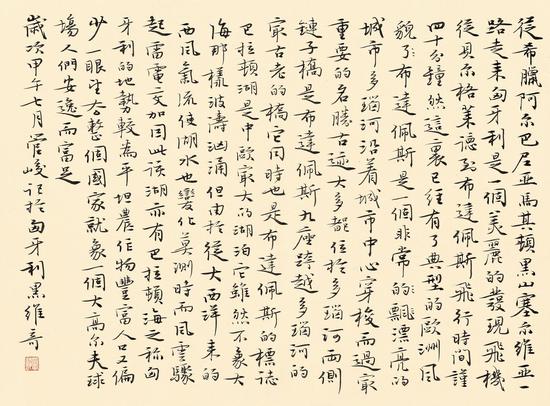 從希臘阿尔巴尼亚馬其頓黑山塞尔維亚一
路走来匈牙利是一個美麗的發現飛機
從貝尔格萊德到布達佩斯飛行時間謹
四十分鐘然這裏已經有了典型的歐洲風
貌了布達佩斯是一個非常的飄漂亮的
城市多瑙河沿着城市中心穿梭而過最
重要的名勝古迹大多都位於多瑙河西側
鏈子橋是布達佩斯九座跨越多瑙河的
最古老的橋它同時也是布達佩斯的標誌
巴拉頓湖是中歐最大的湖泊它雖然不象大
海那樣波濤洶涌但由於從大西洋来的
西風氣流使湖水也變化莫測時而風雲驟
起雷電交加因此該湖亦有巴拉頓海之称匈
牙利的地勢較為平坦農作物豐富人口又偏
少一眼望去整個國家就象一個大高尔夫球
場人們安逸而富足
歲次甲午七月管峻記於匈牙利黑維哥